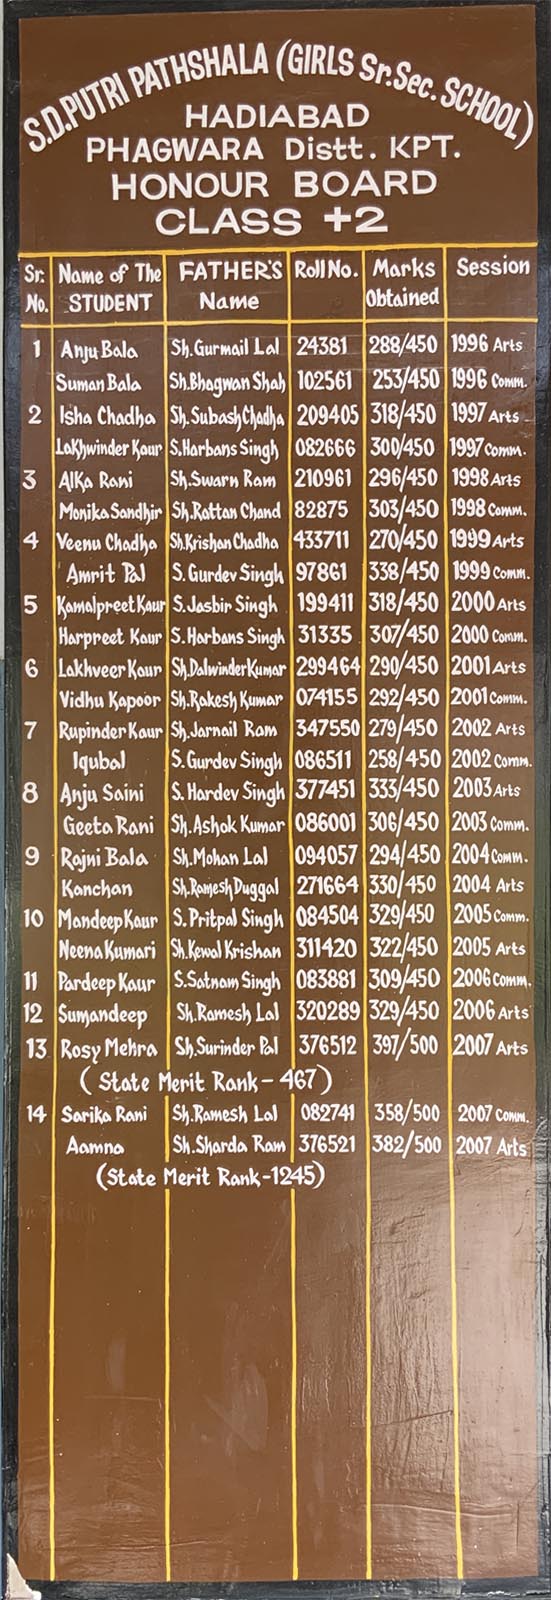 S.D.PUTRI PATHSHALA (GIRLS Sr.Sec. SCHOOL)
HADIABAD
PHAGWARA Distt. KPT.
HONOUR BOARD
CLASS +2
Sr. No. Name of The STUDENT FATHER'S Name Roll No. Marks Obtained Session
1 Anju Bala Sh.Gurmail Lal 24381 288/450 1996 Arts
Suman Bala Sh.Bhagwan Shah 102561 253/450 1996 Comm.
2 Isha Chadha Sh.Subash Chadha 209405 318/450 1997 Arts
Lakhwinder Kaur S.Harbans Singh 082666 300/450 1997 Comm.
3 Alka Rani Sh.Swarn Ram 210961 296/450 1998 Arts
Monika Sandhir Sh.Rattan Chand 82875 303/450 1998 Comm.
4 Veenu Chadha Sh.Krishan Chadha 433711 270/450 1999 Arts
Amrit Pal S. Gurdev Singh 97861 338/450 1999 Comm.
5 Kamalpreet Kaur S.Jasbir Singh 199411 318/450 2000 Arts
Harpreet Kaur S. Harbans Singh 31335 307/450 2000 Comm.
6 Lakhveer Kaur Sh.Dalwinder Kumar 299464 290/450 2001 Arts
Vidhu Kapoor Sh.Rakesh Kumar 074155 292/450 2001 Comm.
7 Rupinder Kaur Sh.Jarnail Ram 347550 279/450 2002 Arts
Iqubal S. Gurdev Singh 086511 258/450 2002 Comm.
8 Anju Saini S. Hardev Singh 377451 333/450 2003 Arts
Geeta Rani Sh.Ashok Kumar 086001 306/450 2003 Comm.
9 Rajni Bala Sh.Mohan Lal 094057 294/450 2004 Comm.
Kanchan Sh.Ramesh Duggal 271664 330/450 2004 Arts
10 Mandeep Kaur S. Pritpal Singh 084504 329/450 2005 Comm.
Neena Kumari Sh.Kewal Krishan 311420 322/450 2005 Arts
11 Pardeep Kaur S.Satnam Singh 083881 309/450 2006 Comm.
12 Sumandeep Sh.Ramesh Lal 320289 329/450 2006 Arts
13 Rosy Mehra Sh.Surinder Pal 376512 397/500 2007 Arts
(State Merit Rank-467)
14 Sarika Rani Sh.Ramesh Lal 082741 358/500 2007 Comm.
Aamna Sh.Sharda Ram 376521 382/500 2007 Arts
(State Merit Rank-1245)